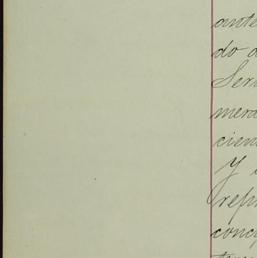 ante
do a
Ser
mera
cien
y
repr
conc